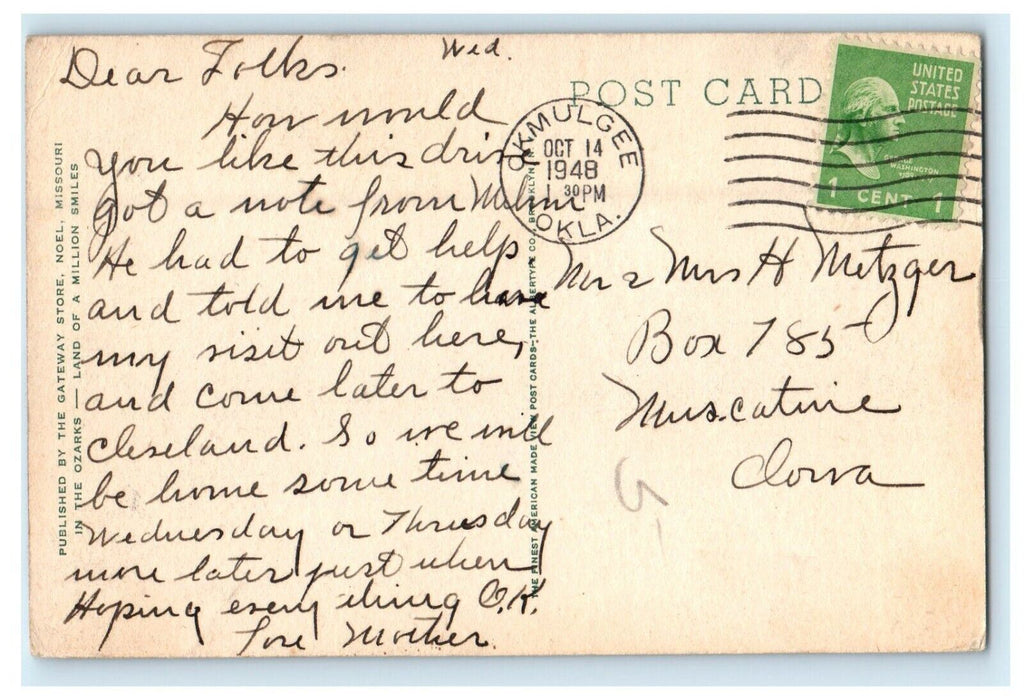 Wed.
Dear Folks.
How would
you like this drive
got a note from
He had to get help
and told me to have
my visit out here,
and come later to
Cleveland. So we will
be home some time
Wednesday or Thursday
more later just when
Hoping every thing O.K.
Love Mother.
POST CARD
OKMULGEE
OCT 14
1948
1 30 PM
OKLA.
UNITED
STATES
POSTAGE
GEORGE
WASHINGTON
1 CENT 1
Mr & Mrs H Metzger
Box 785
Muscatine
Iowa
5-
PUBLISHED BY THE GATEWAY STORE, NOEL, MISSOURI
IN THE OZARKS — LAND OF A MILLION SMILES
THE FINEST AMERICAN MADE VIEW POST CARDS—THE ALBERTYPE CO., BROOKLYN